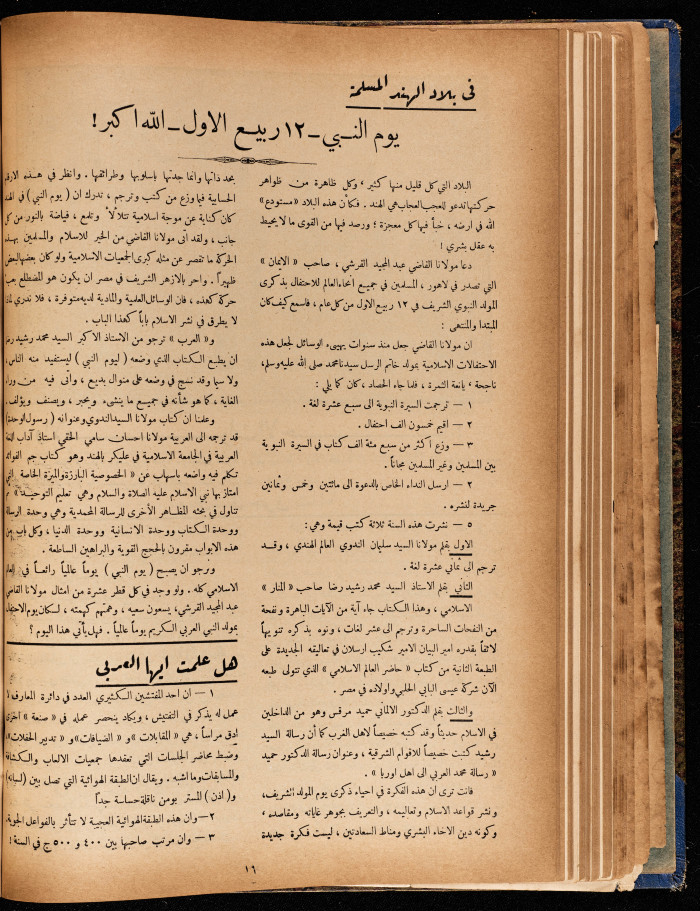 في بلاد الهند المسلمة
يوم النبي ـ ١٢ ربيع الاول ـ الله اكبر!
البلاد التي كل قليل منها كثير، وكل ظاهرة من ظواهر
حركتها تدعو للعجب العجاب هي الهند. فكأن هذه البلاد «مستودع»
الله في ارضه، خبأ فيها كل معجزة؛ ورصد فيها من القوى ما لا يحيط
به عقل بشري!
دعا مولانا القاضي عبد المجيد القرشي، صاحب «الايمان»
التي تصدر في لاهور، المسلمين في جميع انحاء العالم للاحتفال بذكرى
المولد النبوي الشريف في ١٢ ربيع الاول من كل عام، فاسمع كيف كان
المبتدا والمنتهى:
ان مولانا القاضي جعل منذ سنوات يهيىء الوسائل لجعل هذه
الاحتفالات الاسلامية بمولد خاتم الرسل سيدنا محمد صلى الله عليه وسلم،
ناجحة، يانعة الثمرة، فلما جاء الحصاد، كان كما يلي:
١ ـ ترجمت السيرة النبوية الى سبع عشرة لغة.
٢ ـ اقيم خمسون الف احتفال.
٣ ـ وزع اكثر من سبع مئة الف كتاب في السيرة النبوية
بين المسلمين وغير المسلمين مجاناً.
٢ ـ ارسل النداء الخاص بالدعوة الى مائتين وخمس وثمانين
جريدة لنشره.
٥ ـ نشرت هذه السنة ثلاثة كتب قيمة وهي:
الاول بقلم مولانا السيد سليمان الندوي العالم الهندي، وقد
ترجم الى ثماني عشرة لغة.
الثاني بقلم الاستاذ السيد محمد رشيد رضا صاحب «المنار»
الاسلامي، وهذا الكتاب جاء آية من الآيات الباهرة ونفحة
من النفحات الساحرة وترجم الى عشر لغات، ونوه بذكره تنويهاً
لائقاً بقدره امير البيان الامير شكيب ارسلان في تعاليقه الجديدة على
الطبعة الثانية من كتاب «حاضر العالم الاسلامي» الذي تتولى طبعه
الآن شركة عيسى البابي الحلبي واولاده في مصر.
والثالث بقلم الدكتور الالماني حميد مرقس وهو من الداخلين
في الاسلام حديثاً وقد كتبه خصيصاً لاهل الغرب كما أن رسالة السيد
رشيد كتبت خصيصاً للاقوام الشرقية، وعنوان رسالة الدكتور حميد
«رسالة محمد العربي الى اهل اوربا».
فانت ترى ان هذه الفكرة في احياء ذكرى يوم المولد الشريف،
ونشر قواعد الاسلام وتعاليمه، والتعريف بجوهر غاياته ومقاصده،
وكونه دين الاخاء البشري ومناط السعادتين، ليست فكرة جديدة
بحد ذاتها وانما جدتها باسلوبها وطرائقها. وانظر في هذه الارقام
الحسابية فيما وزع من كتب وترجم، تدرك ان (يوم النبي) في الهند
كان كناية عن موجة اسلامية تتلألأ وتلمع، فياضة بالنور من كل
جانب، ولقد أتى مولانا القاضي من الخير للاسلام والمسلمين بهذه
الحركة ما تقصر عن مثله كبرى الجمعيات الاسلامية ولو كان بعضها لبعض
ظهيراً. واحر بالازهر الشريف في مصر ان يكون هو المضطلع بعبء
حركة كهذه، فان الوسائل العلمية والمادية لديه متوفرة، فلا ندري لماذا
لا يطرق في نشر الاسلام باباً كهذا الباب.
و«العرب» ترجو من الاستاذ الاكبر السيد محمد رشيد رضا
ان يطبع الكتاب الذي وضعه (ليوم النبي) ليستفيد منه الناس،
ولا سيما وقد نسج في وضعه على منوال بديع، وأتى فيه من وراء
الغاية، كما هو شأنه في جميع ما ينشىء ويحبر، ويصنف ويؤلف.
وعلمنا ان كتاب مولانا السيد الندوي وعنوانه (رسول الوحدة)
قد ترجمه الى العربية مولانا احسان سامي الحقي استاذ آداب اللغة
العربية في الجامعة الاسلامية في عليكر بالهند وهو كتاب جم الفوائد
تكلم فيه واضعه باسهاب عن «الخصوصية البارزة والميزة الخاصة التي
امتاز بها نبي الاسلام عليه الصلاة والسلام وهي تعليم التوحيد» ثم
تناول في بحثه المظاهر الأخرى للرسالة المحمدية وهي وحدة الرسالة
ووحدة الكتاب ووحدة الانسانية ووحدة الدنيا، وكل باب من
هذه الابواب مقرون بالحجج القوية والبراهين الساطعة.
ونرجو ان يصبح (يوم النبي) يوماً عالمياً رائعاً في العالم
الاسلامي كله. ولو وجد في كل قطر عشرة من امثال مولانا القاضي
عبد المجيد القرشي، يسعون سعيه، وهمتهم كهمته، لكان يوم الاحتفال
بمولد النبي العربي الكريم يوماً عالمياً. فهل يأتي هذا اليوم؟
هل علمت ايها العربي
١ ـ ان احد المفتشين الكثيري العدد في دائرة المعارف لا
عمل له يذكر في التفتيش، ويكاد ينحصر عمله في «صنعة» اخرى
ادق مراساً، هي «المقابلات» و«الضيافات» و«تدبير الحفلات»،
وضبط محاضر الجلسات التي تعقدها جمعيات الالعاب والكشافة
والمسابقات وما اشبه. ويقال ان الطبقة الهوائية التي تصل بين (لسانه)
و(اذن) المستر بومن ناقلة حساسة جداً
٢ـ وان هذه الطبقة الهوائية العجيبة لا تتأثر بالفواعل الجوية.
٣ ـ وان مرتب صاحبها بين ٤٠٠ و ٥٠٠ ج في السنة!
١٦